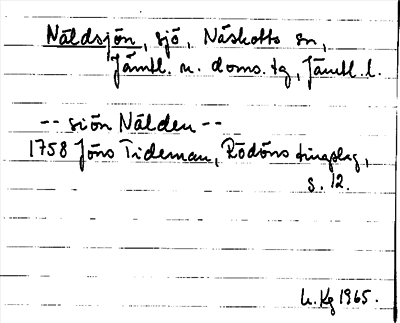 Näldsjön, sjö, Näskotts sn,
Jämtl. n. doms. tg, Jämtl. l.
-- siön Nälden --
1758 Jöns Tideman, Rödöns tingslag,
s. 12.
1965.